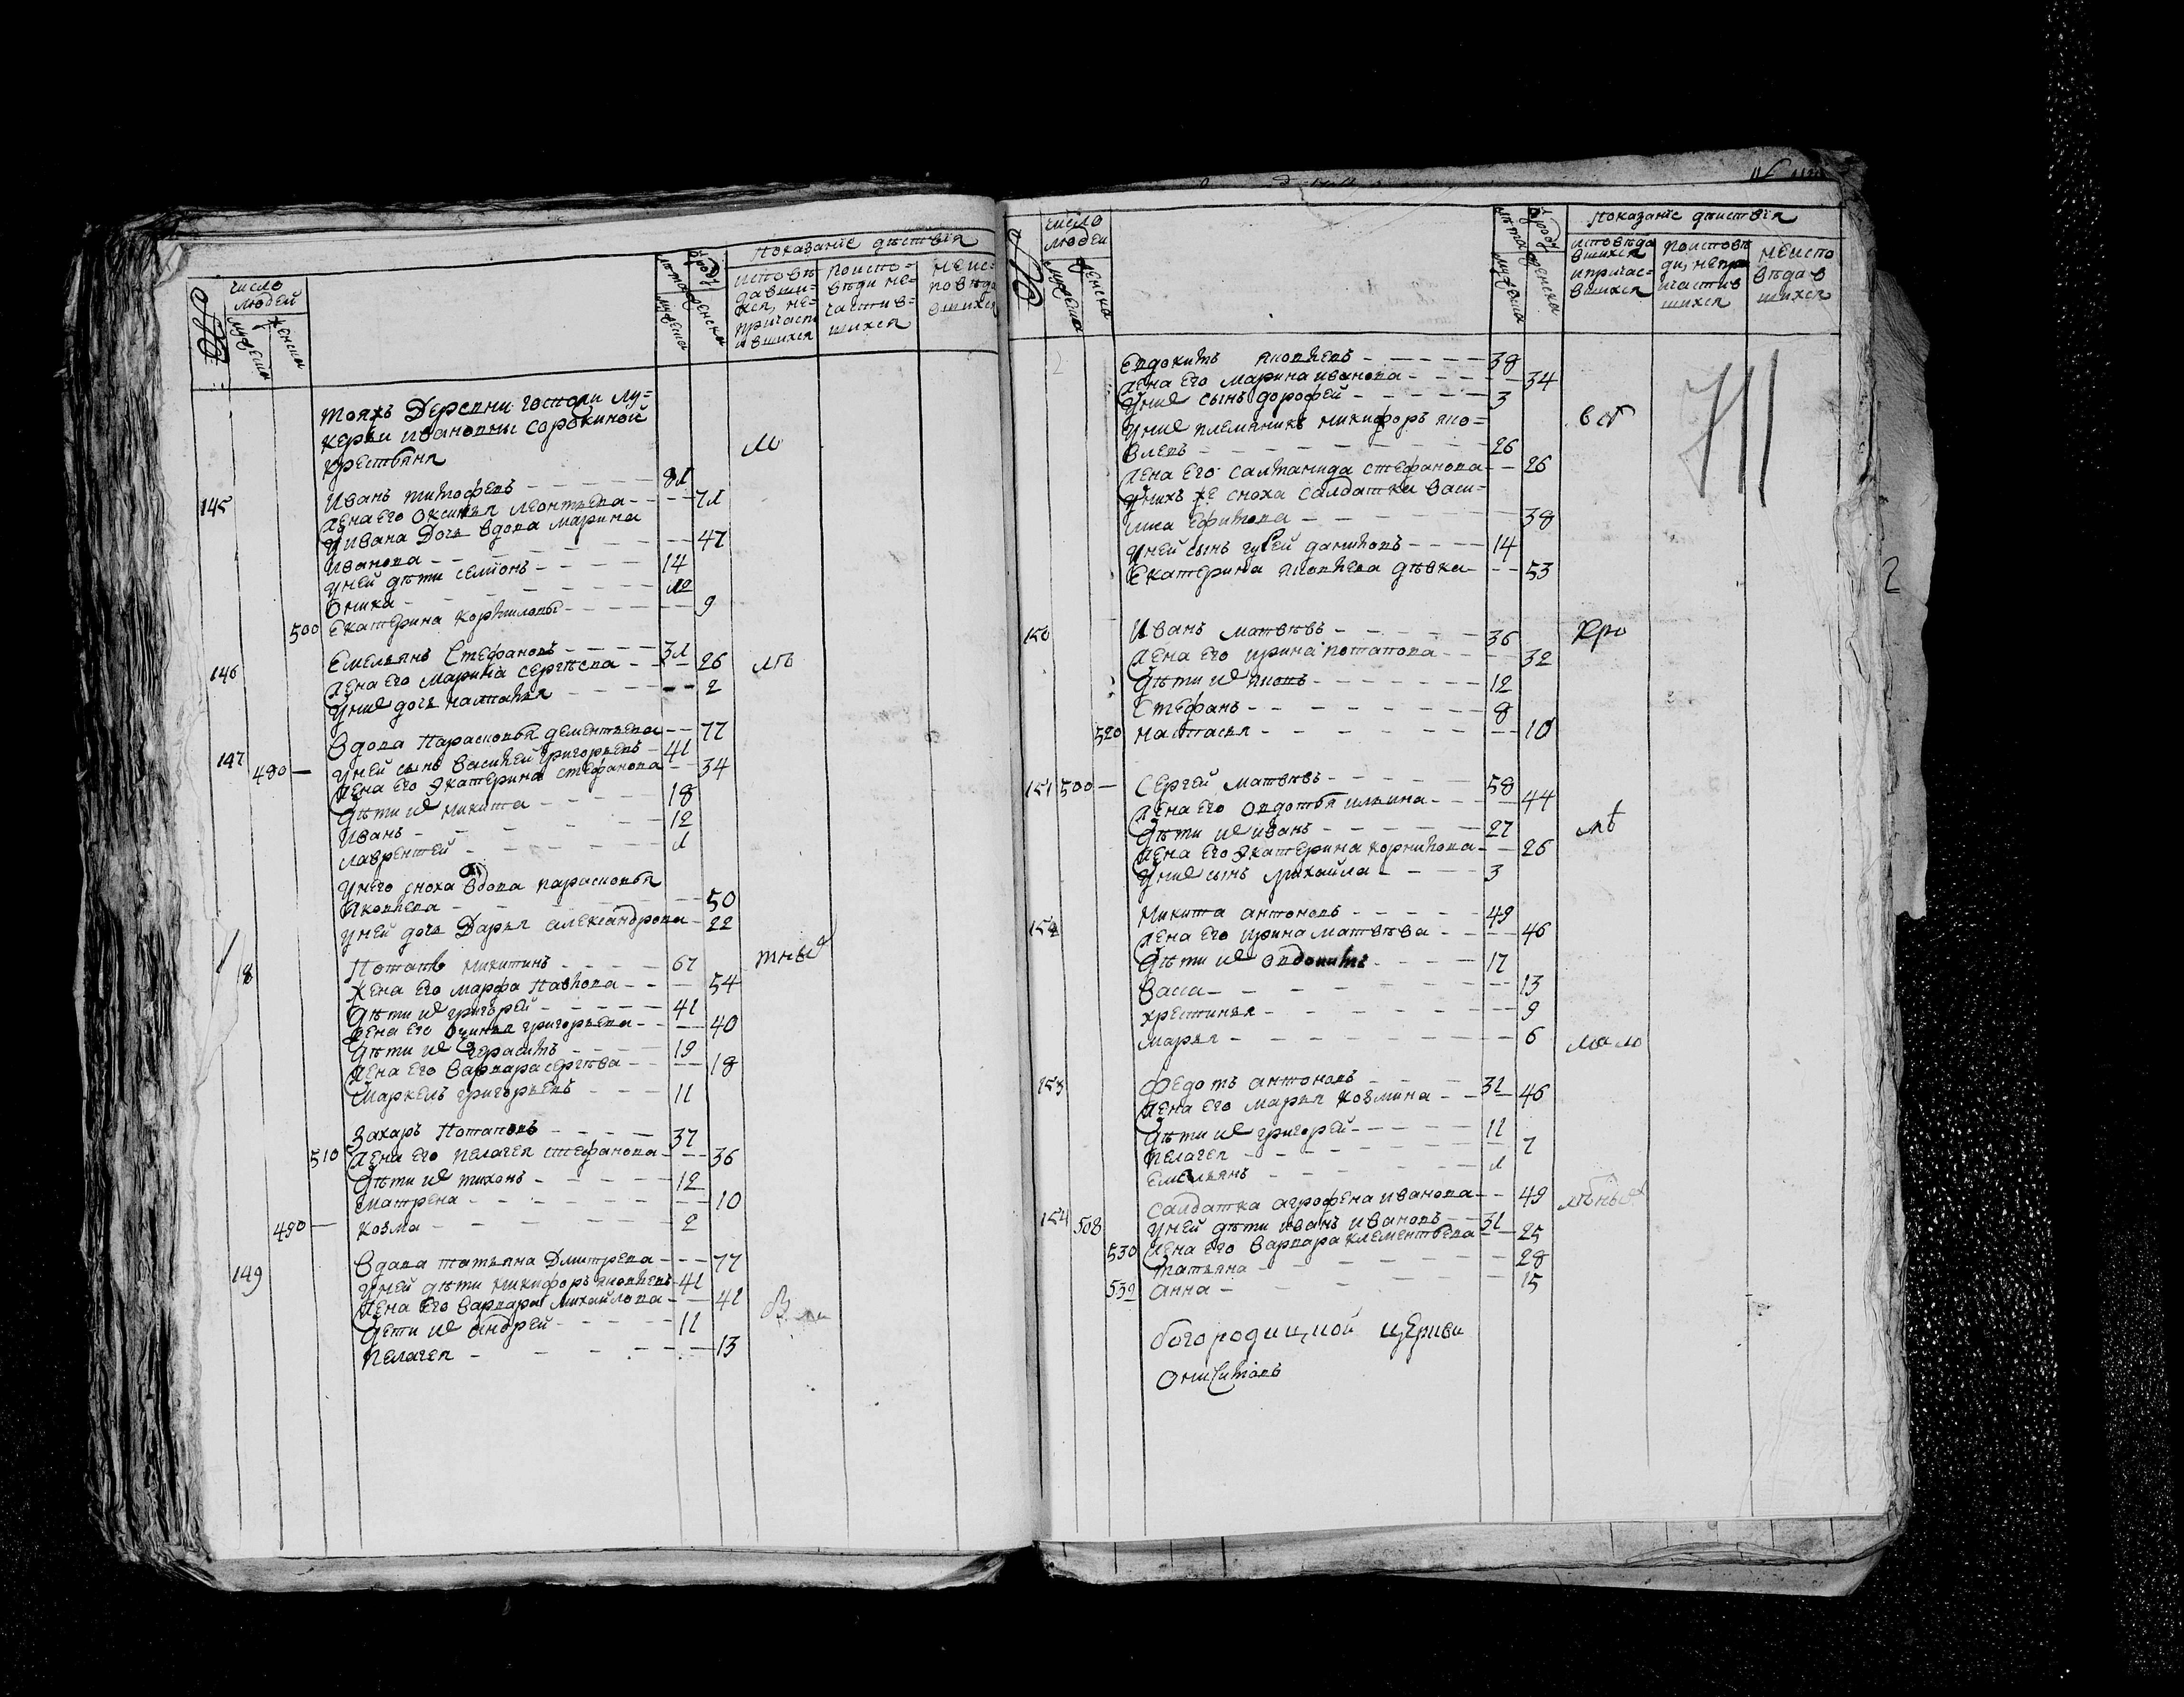 число людей
мужеска
женска
лѣта
роду
мужеска
женска
Показание дѣйствия
исповѣдавшихся, не причастившихся
по исповѣди не частившихся
не исповѣдавшихся
тояжъ Деревни госпожи лу=
керьи ивановны сорокиной
крестьяня
145 Иванъ тимофеевъ - - - - 81
жена его Оксинья леонтьева - - 71
У ивана Дочь вдова марина
Иванова - - - 47
у ней дѣти семионъ - - - 14
Оника - - - 10
500 Екатерина Корнилова - - - 9
146 Емельянъ Стефановъ - - - 31
жена его марина сергѣева - - 26
у ние дочь наталья - - 2
вдова Парасковья дементьева - - 77
147 480 — у ней сынъ василей григорьевъ - 41
жена его Экатерина стефанова - 34
дѣти ие микита - - - 18
Иванъ - - - 12
лаврентей - - - 1
у него сноха вдова парасковья
Яковлева - - - 50
у ней дочь Дарья александрова - 22
8 Потапъ микитинъ - - - 67
жена его марфа Павлова - - 54
дѣти ие григорей - - - 41
жена его григорьева - - 40
дѣти ие герасимъ - - 19
жена его варвара сергѣева - - 18
маркелъ григорьевъ - - 11
Захаръ Потаповъ - - - 37
510 жена его пелагея стефанова - - 36
дѣти ие тихонъ - - - 12
матрена - - - 10
490 — козма - - - 2
149 вдова татьяна Дмитрева - - - 77
у ней дѣти микифоръ яковлевъ - 41
жена его варвара михайлова - - 41
дѣти ие андрей - - - 11
пелагея - - - 13
мо
лъ
тные
число людей
мужеска
женска
лѣта
роду
мужеска
женска
показание дѣиствия
исповѣдавшихся и причас=вшихся
по исповѣди, не причастившихся
не исповѣдавшихся
Евдокимъ яковлевъ - - - - 38
жена его марина иванова - - - 34
у ние сынъ дорофей - - - 3
у ние племянникъ микифоръ яко=
влевъ - - - 26
жена его салманида стефанова - - 26
у нихъ же сноха салдатка васи=
лиса ефимова - - - 38
у ней сынъ гурей даниловъ - - - 14
Екатерина яковлева дѣвка - - - 53
150 Иванъ матвѣвъ - - - 36
жена его ирина потапова - - - 32
дѣти ие яковъ - - - 12
Стефанъ - - - 8
520 настасья - - - 10
151 500 — Сергей матвѣвъ - - - 58
жена его овдотья ильина - - - 44
дѣти ие иванъ - - - 27
жена его Экатерина корнилова - - 26
у ние сынъ михайла - - - 3
микита антоновъ - - - 49
152 жена его ирина матвѣва - - - 46
дѣти ие овдокимъ - - - 17
васса - - - 13
христинья - - - 9
марья - - - 6
153 федотъ антоновъ - - - 31
жена его марья козмина - - 46
дѣти ие григорей - - - 11
пелагея - - - 7
емельянъ - - - 1
салдатка агрофена иванова - - 49
154 508 у ней дѣти иванъ ивановъ - - 31
530 жена его варвара клементьева - - 25
татьяна - - - 28
532 анна - - - 15
кро
лѣ
мало
богородицкой церкви
2